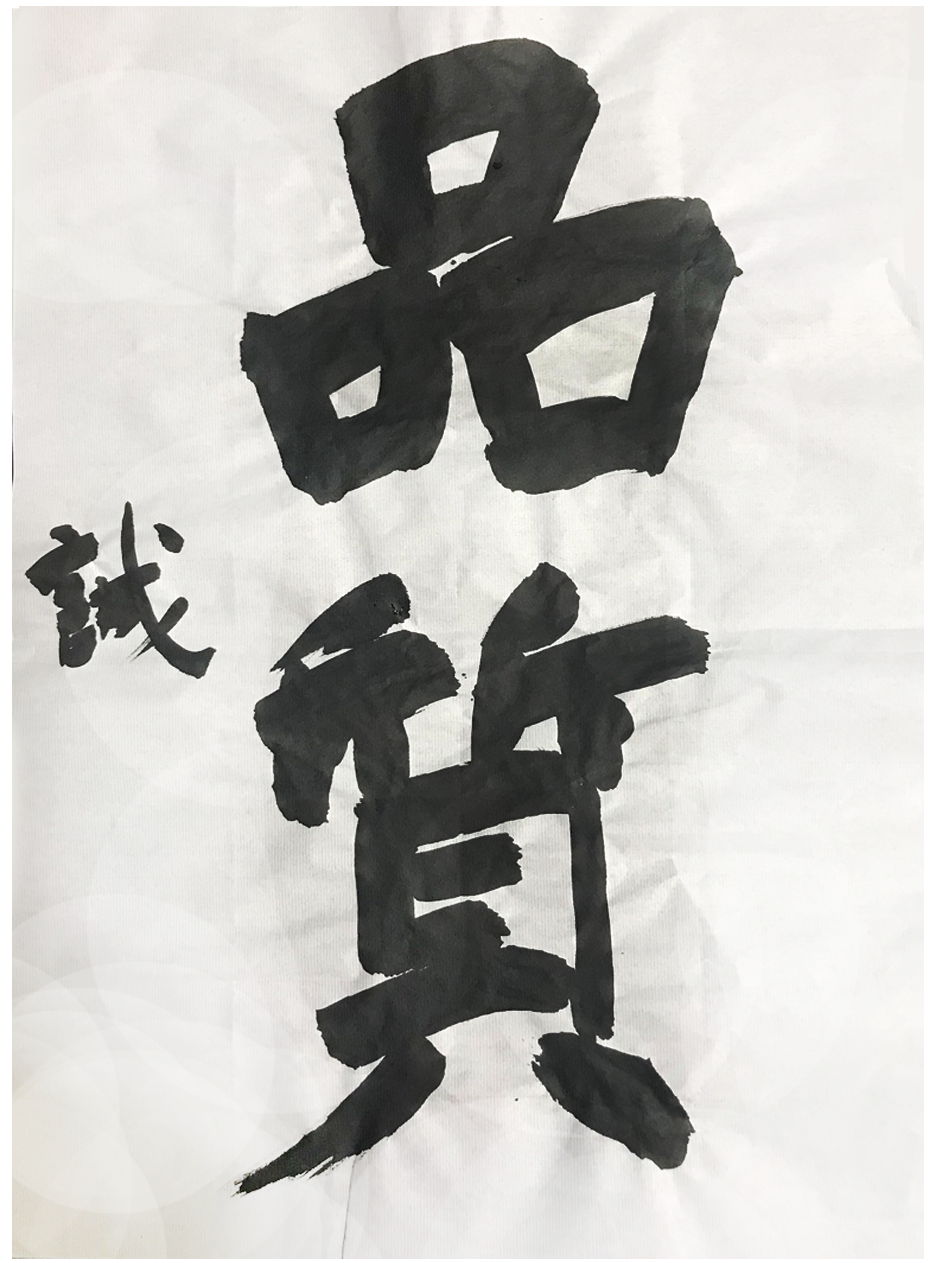 品質
誠